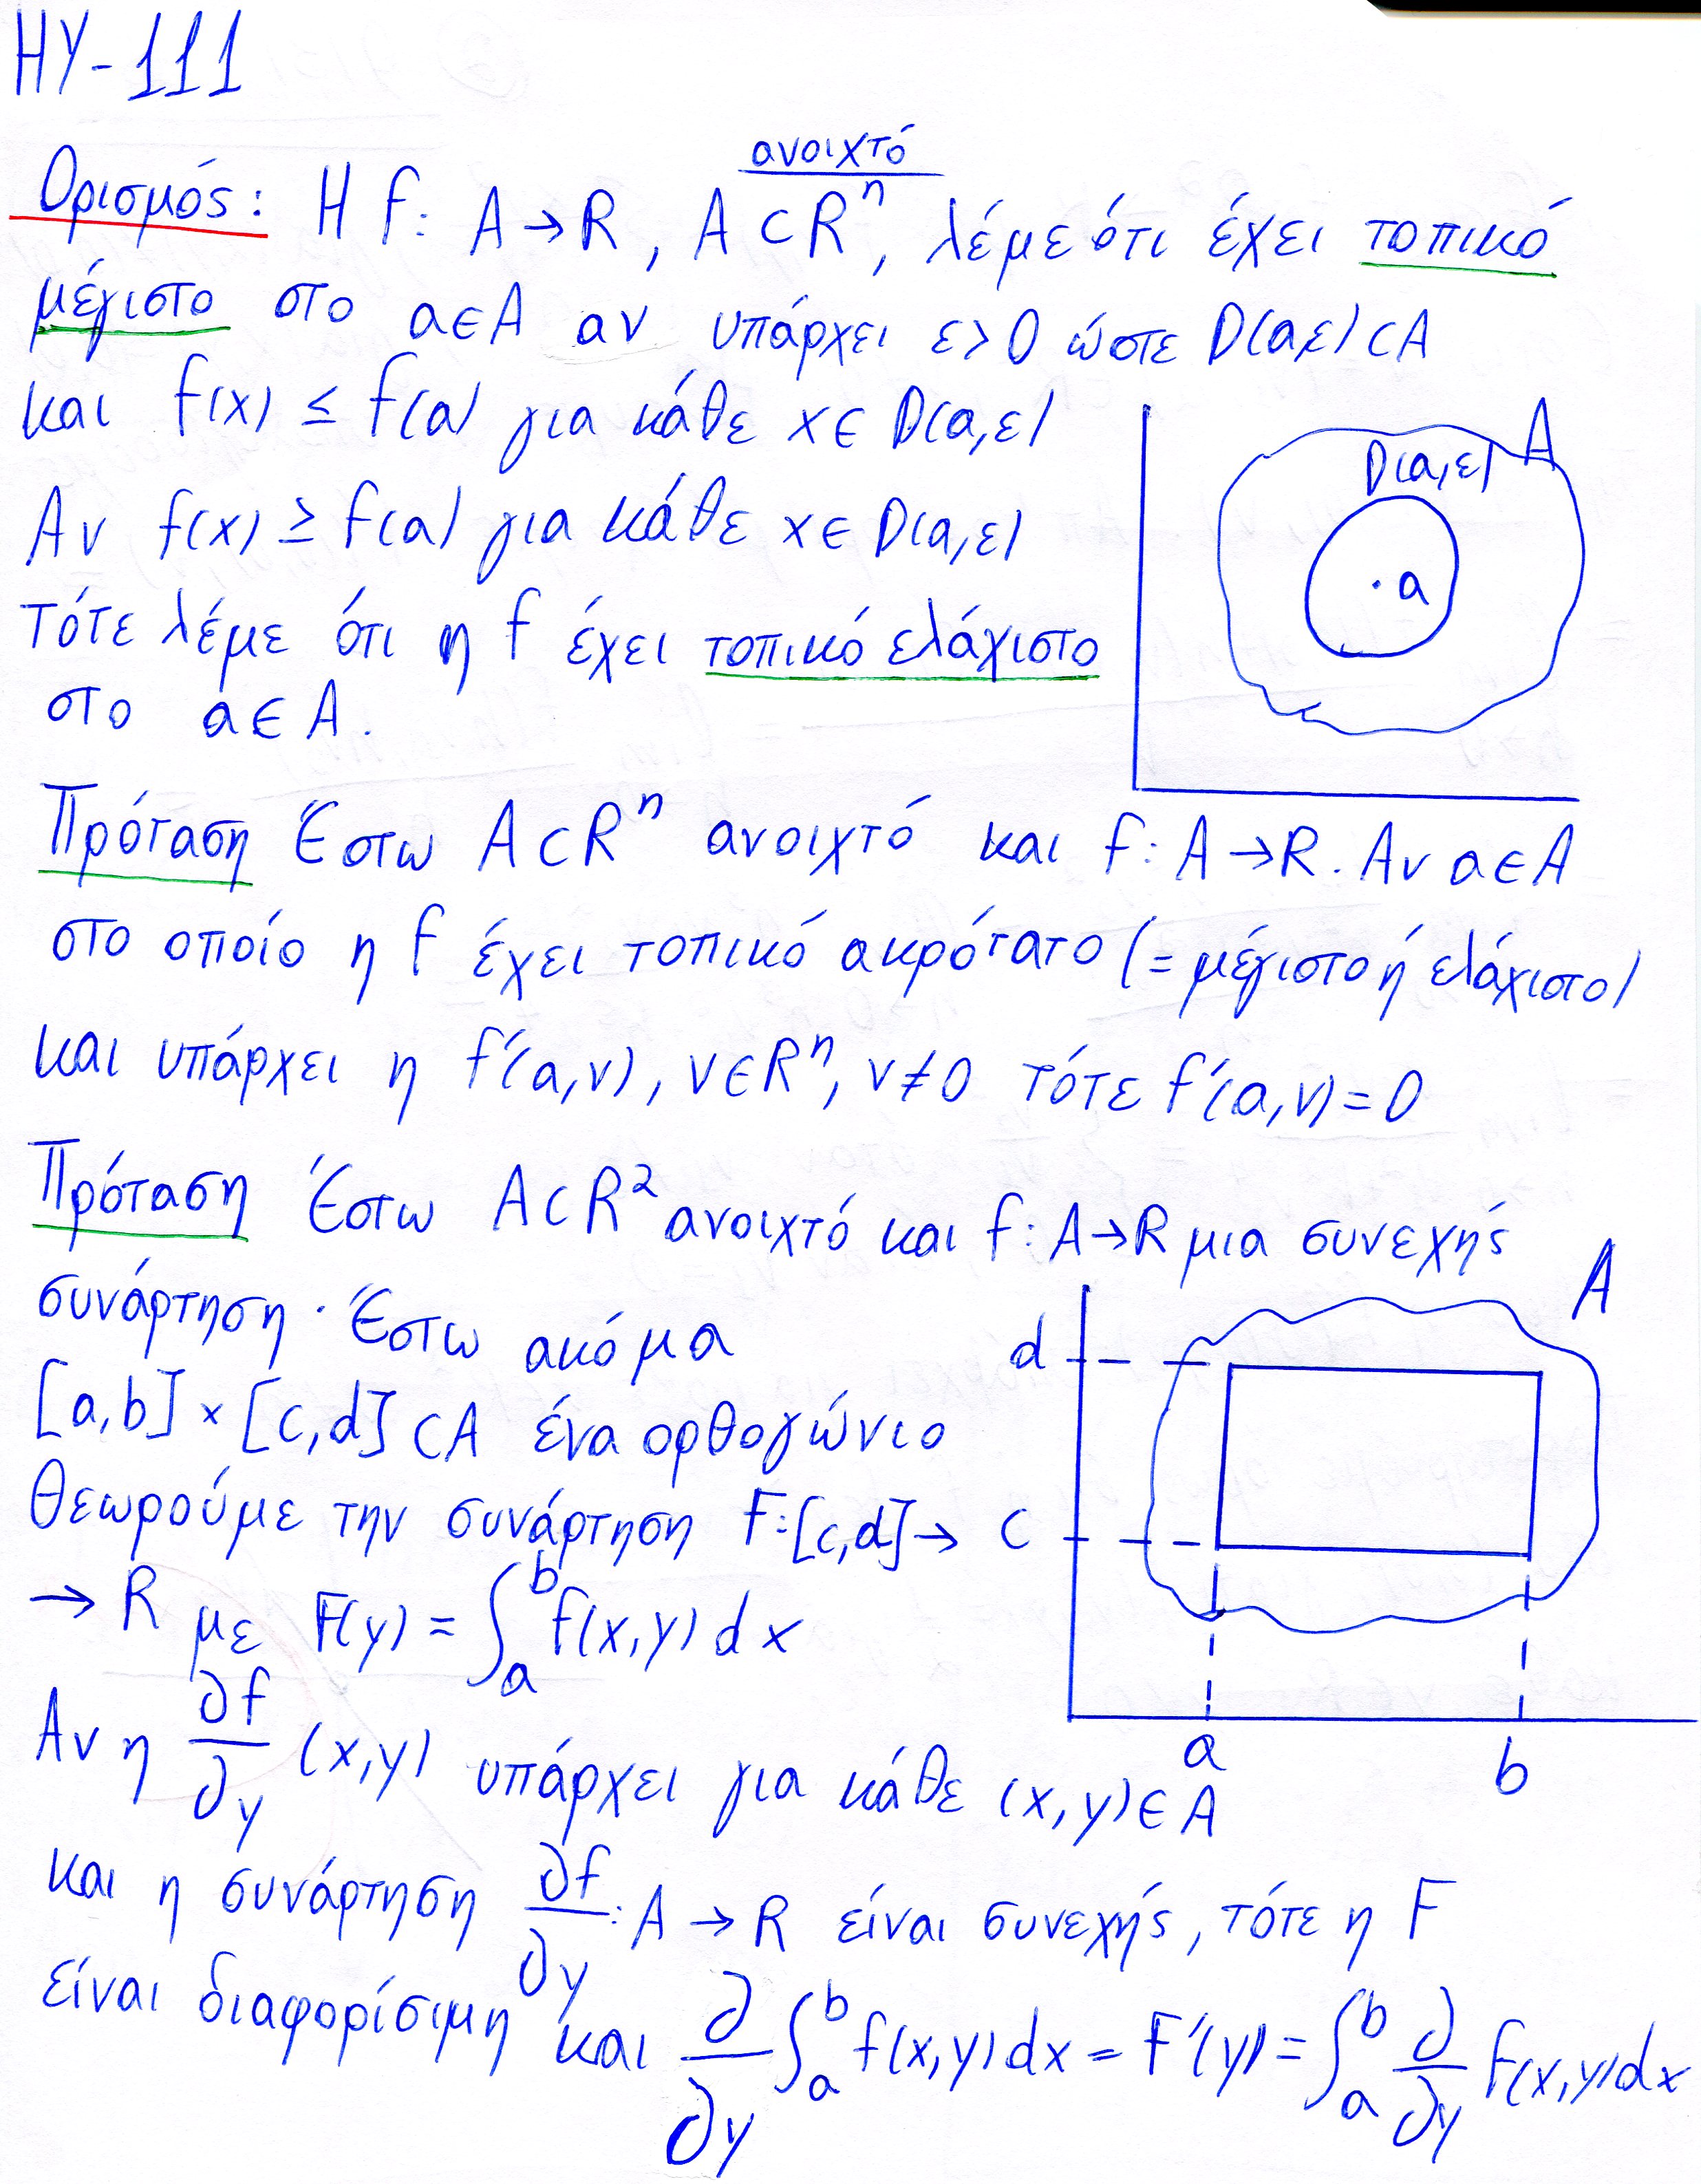 ΗΥ-111
ανοιχτό
Ορισμός: Η f: A→R, A⊂Rⁿ, λέμε ότι έχει τοπικό
μέγιστο στο a∈A αν υπάρχει ε>0 ώστε D(a,ε)⊂A
και f(x) ≤ f(a) για κάθε x∈ D(a,ε)
Αν f(x) ≥ f(a) για κάθε x∈ D(a,ε)
τότε λέμε ότι η f έχει τοπικό ελάχιστο
στο a∈A.
A
D(a,ε)
a
Πρόταση Έστω A⊂Rⁿ ανοιχτό και f: A→R. Αν a∈A
στο οποίο η f έχει τοπικό ακρότατο (=μέγιστο ή ελάχιστο)
και υπάρχει η f'(a,v), v∈Rⁿ, v≠0 τότε f'(a,v)=0
Πρόταση Έστω A⊂R² ανοιχτό και f: A→R μια συνεχής
συνάρτηση. Έστω ακόμα
[a,b]×[c,d]⊂A ένα ορθογώνιο
θεωρούμε την συνάρτηση F:[c,d]→
→ R με F(y) = ∫ₐᵇ f(x,y) dx
A
d
c
a
b
Αν η ∂f/∂y (x,y) υπάρχει για κάθε (x,y)∈A
και η συνάρτηση ∂f/∂y: A→R είναι συνεχής, τότε η F
είναι διαφορίσιμη και ∂/∂y ∫ₐᵇ f(x,y)dx = F'(y) = ∫ₐᵇ ∂/∂y f(x,y)dx